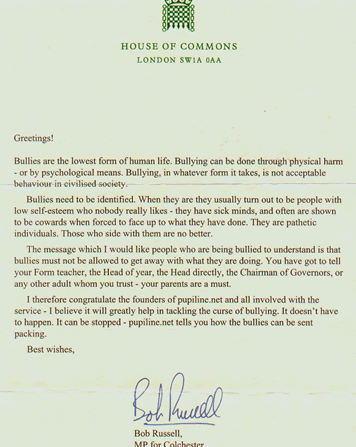 HOUSE OF COMMONS
LONDON SW1A 0AA
Greetings!
Bullies are the lowest form of human life. Bullying can be done through physical harm
- or by psychological means. Bullying, in whatever form it takes, is not acceptable
behaviour in civilised society.
Bullies need to be identified. When they are they usually turn out to be people with
low self-esteem who nobody really likes - they have sick minds, and often are shown
to be cowards when forced to face up to what they have done. They are pathetic
individuals. Those who side with them are no better.
The message which I would like people who are being bullied to understand is that
bullies must not be allowed to get away with what they are doing. You have got to tell
your Form teacher, the Head of year, the Head directly, the Chairman of Governors, or
any other adult whom you trust - your parents are a must.
I therefore congratulate the founders of pupiline.net and all involved with the
service - I believe it will greatly help in tackling the curse of bullying. It doesn't have
to happen. It can be stopped - pupiline.net tells you how the bullies can be sent
packing.
Best wishes,
Bob Russell
Bob Russell,
MP for Colchester